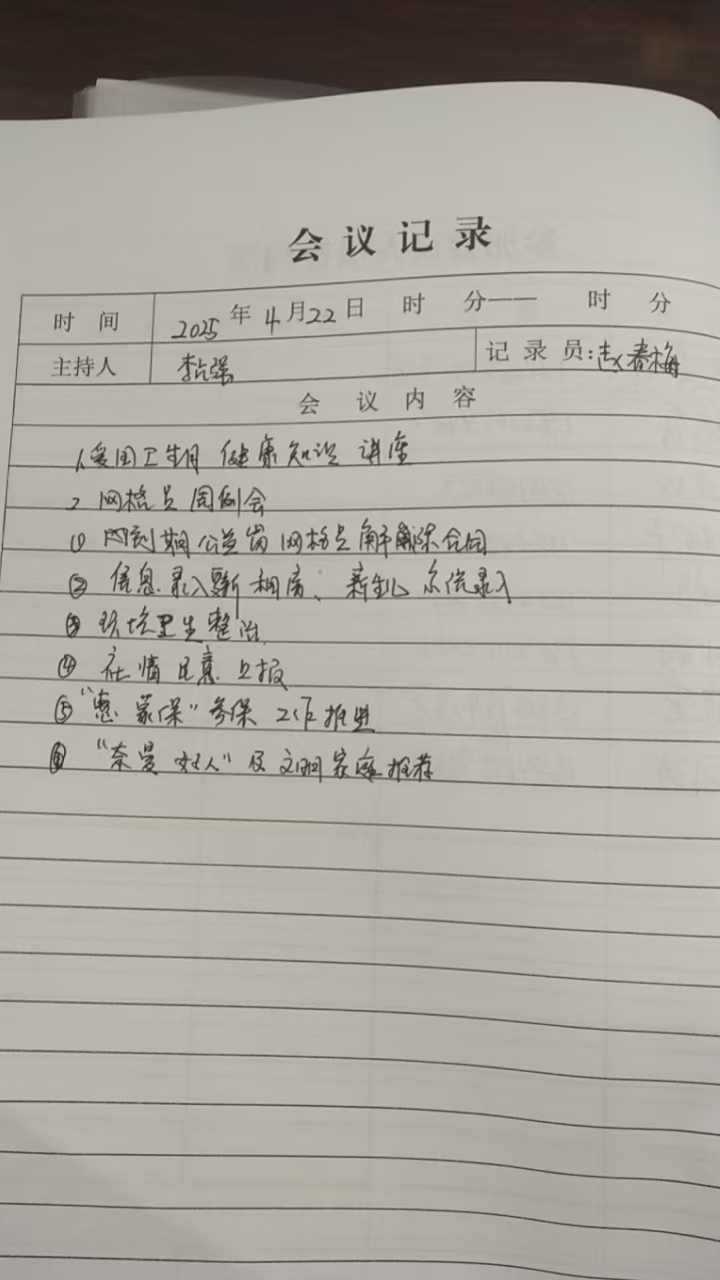 会议记录
时间 2025年4月22日 时 分—— 时 分
主持人 李占强 记录员:赵春梅
会议内容
1.爱国卫生月 健康知识 讲座
2 网格员周例会
① 到期公益岗网格员解除合同
② 信息录入 新 系统录入
③ 环境卫生整治
④ 社情民意上报
⑤ "惠蒙保"参保 工作推进
⑥ "奈曼好人"及文明家庭推荐